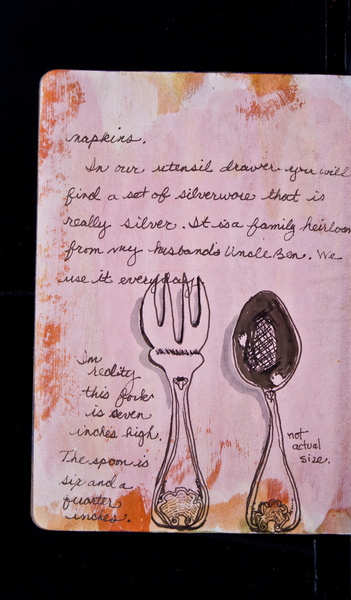 napkins.
In our utensil drawer you will
find a set of silverware that is
really silver. It is a family heirloom
from my husband's Uncle Ben. We
use it everyday.
In
reality
this fork
is seven
inches high.
The spoon is
six and a
quarter
inches.
not
actual
size.